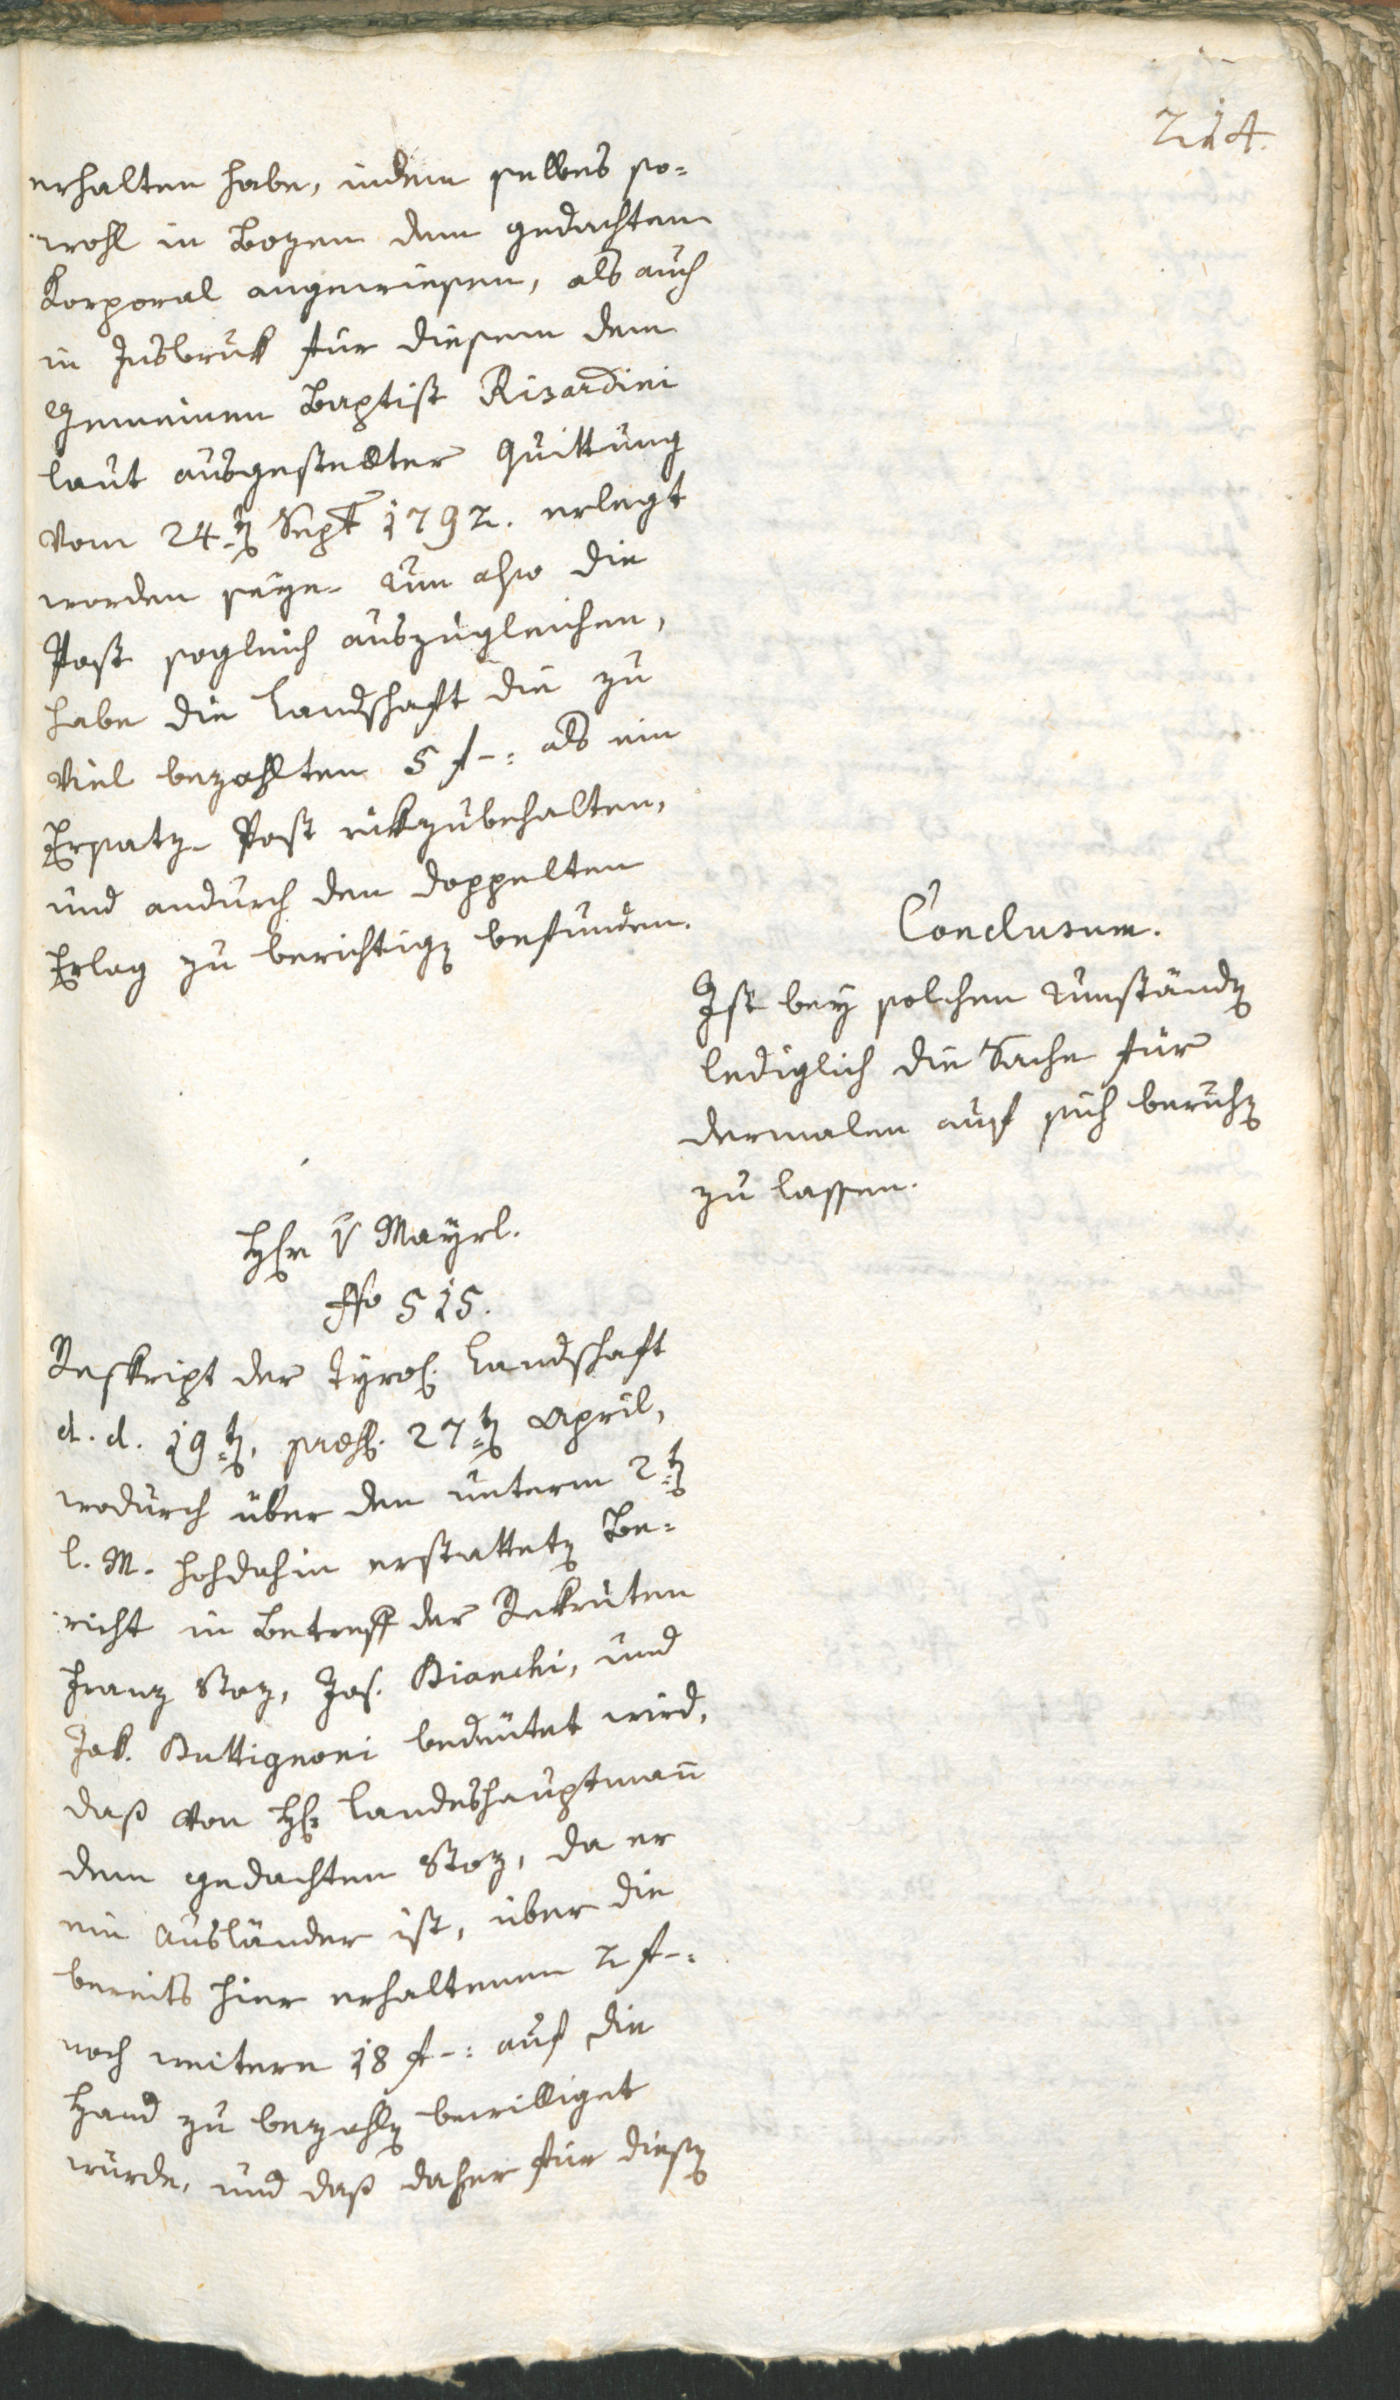 214.
erhalten habe, indem selbes so=
wohl in Bozen dem gedachten
Korporal angewiesen, als auch
in Insbruk für diesem dem
Gemeinen Baptist Rizardini
laut ausgestellter Quittung
vom 24.ten Sept 1792. erlegt
worden seye. Um also die
Post sogleich auszugleichen,
habe die Landschaft die zu
viel bezahlten 5 f -: als ein
Ersatz-Post rükzubehalten,
und andurch den doppelten
Erlag zu berichtigen befunden.
Conclusum.
Ist bey solchen Umständen
lediglich die Sache für
dermalen auf sich beruhen
zu lassen.
Hhrn v Mayrl.
No 515.
Reskript der Tyrol. Landschaft
d. d. 19ten, praes. 27ten April,
wodurch über den unterm 2ten
l. M. hohdahin erstatteten Be=
richt in Betreff der Rekruten
Franz Stoz, Jos. Bianchi, und
Jak. Buttignoni bedeutet wird,
daß von Hhr. Landeshauptmann
dem gedachten Stoz, da er
ein Ausländer ist, über die
bereits hier erhaltenen 2 f -:
noch weitere 18 f -: auf die
Hand zu bezahlen bewilliget
wurde, und daß daher für diesen